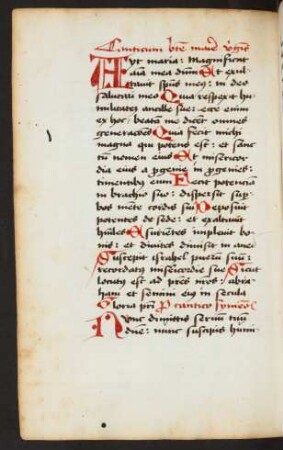 Canticum bte marie v̓gis
Ayt maria: Magnificat
aīa mea dnm̄ Et exul
tauit spūs meꝰ: in deo
salutari meo Quia respexit hu
militatē ancille sue: ecce enim
ex hoc: beatam me dicēt omnes
generacōes Quia fecit michi
magna qui potens est: et sanc
tū nomen eius Et misericor
dia eius a ꝓgenie in ꝓgenies:
timentibꝫ eum Fecit potenciā
in brachio suo: dispersit suꝑ
bos mēte cordis sui Deposuit
potentes de sede: et exaltauit
hūiles Esurientes impleuit bo
nis: et diuites dimisit in anes
Suscepit israhel pueꝝ suū:
recordatꝰ misericordie sue Sicut
locutꝰ est ad prēs nrōs: abra
ham et semini eiꝰ in secula
Gloria pr̄i canticū symeōs
Nunc dimittis seruū tuū
dn̄e: nunc suscipis